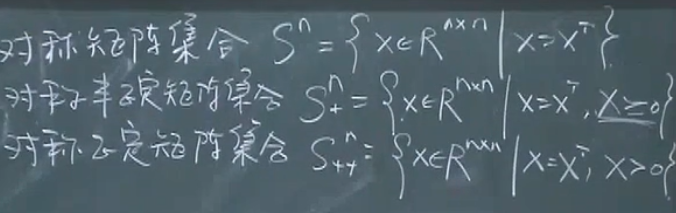 对称矩阵集合 Sⁿ = { X∈Rⁿˣⁿ | X=Xᵀ }
对称半正定矩阵集合 S₊ⁿ = { X∈Rⁿˣⁿ | X=Xᵀ, X≥0 }
对称正定矩阵集合 S₊₊ⁿ = { X∈Rⁿˣⁿ | X=Xᵀ, X>0 }